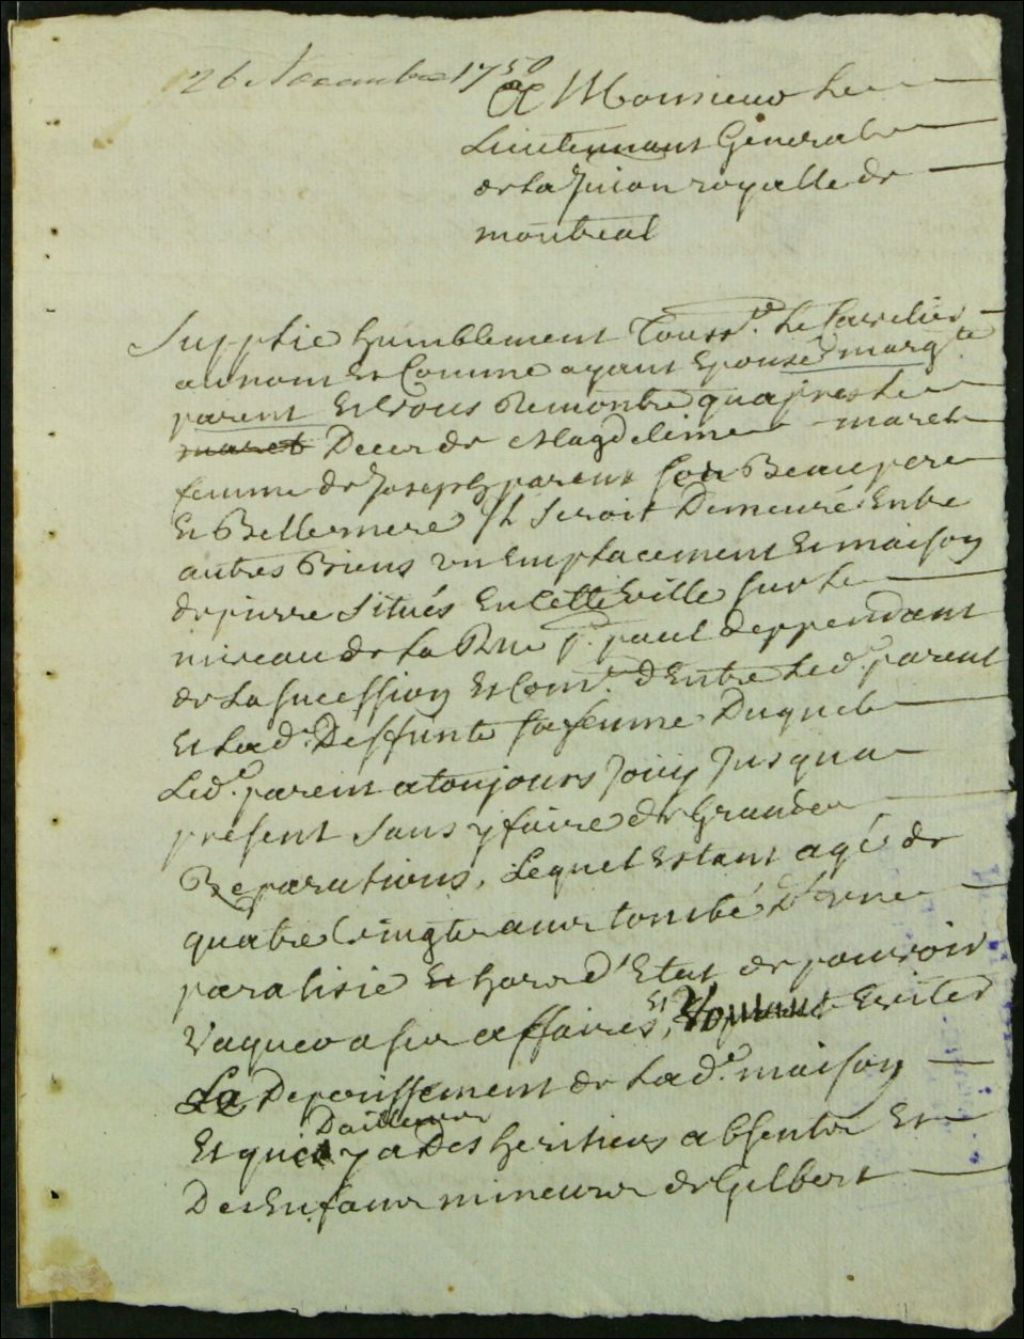 26 Novembre 1750
A Monsieur Le
Lieutenant General
de La Jurion royalle de
montreal
Supplie humblement Touss.t Le Cavelier
au nom Et Comme ayant Epousé marg.te
parent Et Vous Remontre quapres Le
maret Deces de Magdeleine maret
femme de Joseph parent son Beaupere
Et Bellemere Il Seroit Demeuré Entre
autres Biens un Emplacement Et maison
de pierre Situés En Cette Ville sur Le
niveau de la Rue S.t paul deppendant
de La sucession Et Com.té d'Entre Led.t parent
Et Lad.e Deffunte sa femme Duquel
Led.t parent a toujours Jouy Jusqua
present Sans y faire de Grandes
Reparations, Lequel Estant agé de
quatre Vingts ans tombé d'une
paralisie Et hors d'Etat de pouvoir
Vaquer a ses affaires, Et Voulant Eviter
Le Deperissement de Lad.e maison
Dailleurs
Et qu'il y a Des heritiers absents Et
Des Enfans mineurs de Gilbert